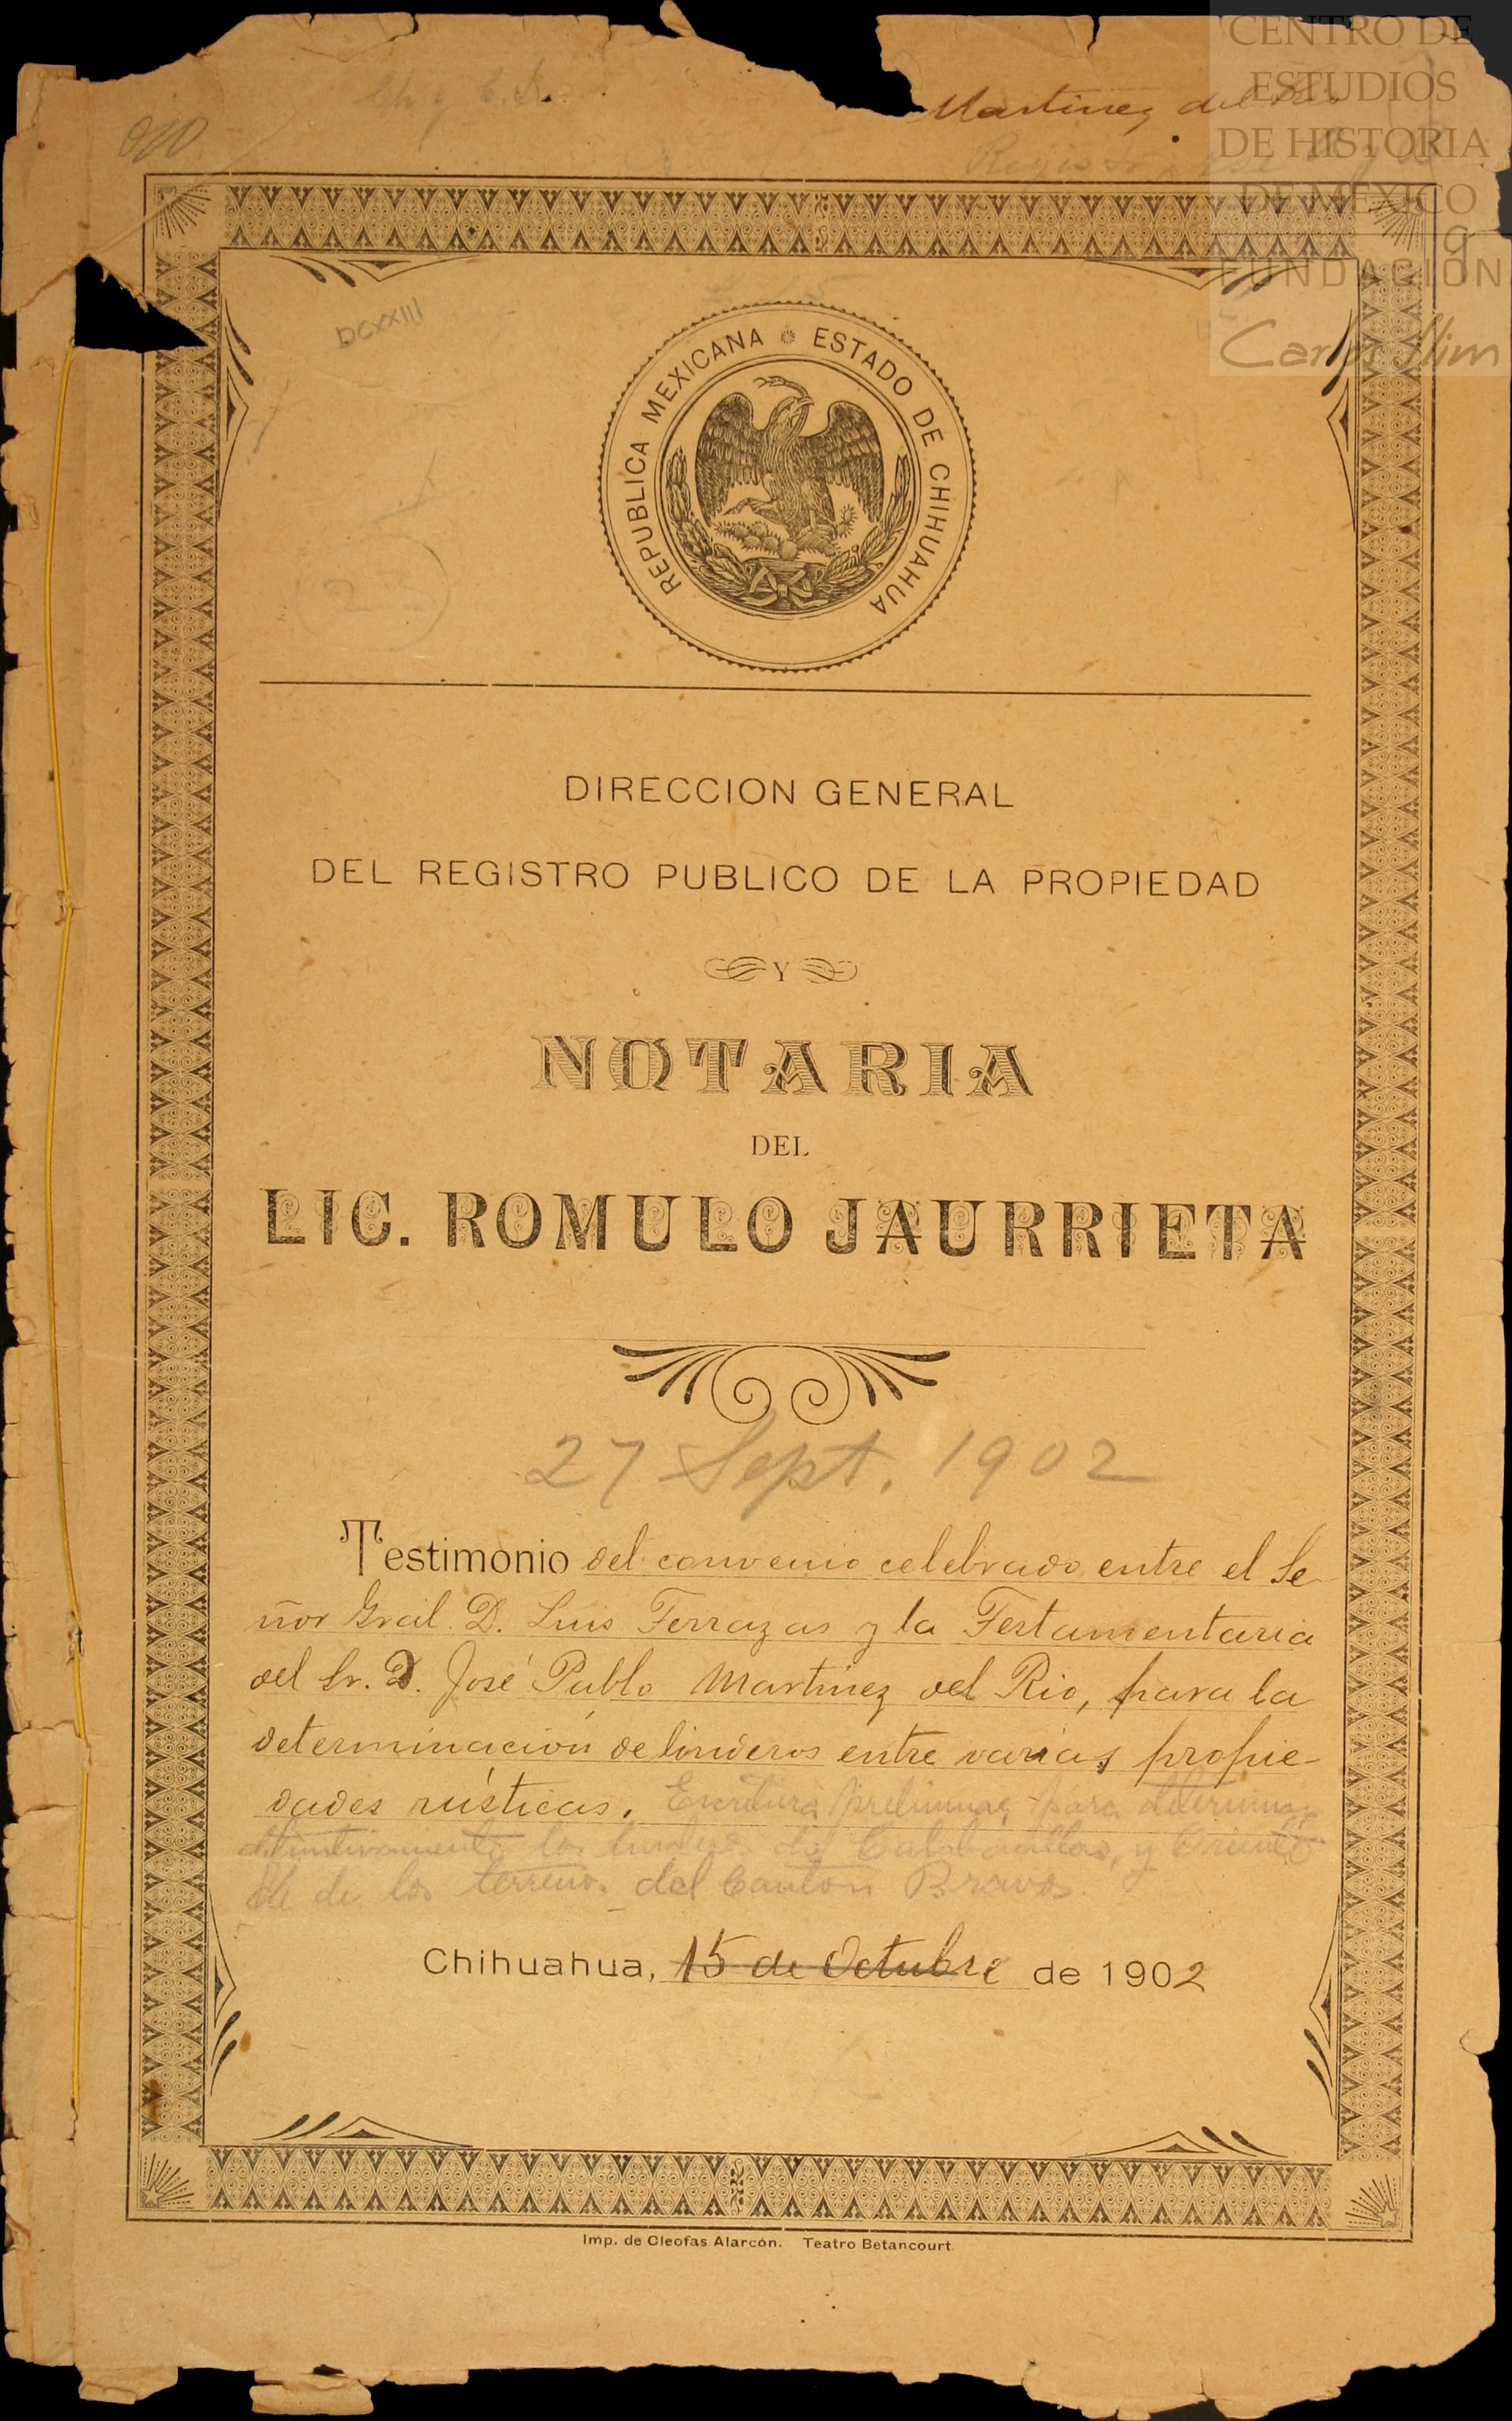 CENTRO DE
ESTUDIOS
DE HISTORIA
DE MEXICO
FUNDACIÓN
Carlos Slim
Martinez del Rio
DCXXIII
2
REPUBLICA MEXICANA ESTADO DE CHIHUAHUA
DIRECCION GENERAL
DEL REGISTRO PUBLICO DE LA PROPIEDAD
Y
NOTARIA
DEL
LIC. ROMULO JAURRIETA
27 Sept. 1902
Testimonio del convenio celebrado entre el Se-
ñor Gral. D. Luis Terrazas y la Testamentaria
del Sr. D. José Pablo Martínez del Rio, para la
determinación de linderos entre varias propie-
dades rústicas. Escritura preliminar para determinar
definitivamente los linderos de y
de los terrenos del Canton Bravos.
Chihuahua, 15 de Octubre de 1902
Imp. de Cleofas Alarcón. Teatro Betancourt.